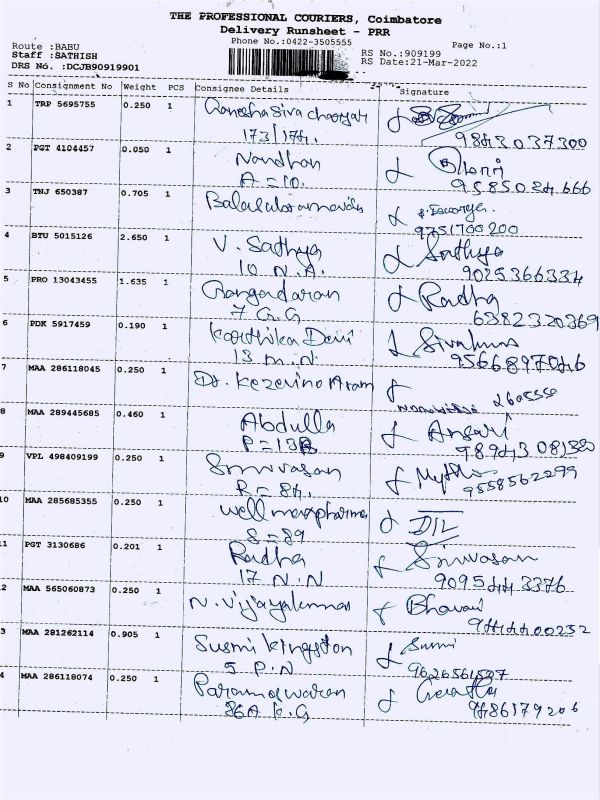 THE PROFESSIONAL COURIERS, Coimbatore
Delivery Runsheet - PRR
Phone No.:0422-3505555
Page No.:1
Route :BABU
Staff :SATHISH
DRS No. :DCJB90919901
RS No.:909199
RS Date:21-Mar-2022
S No Consignment No Weight PCS Consignee Details Signature
1 TRP 5695755 0.250 1
173/174.
9843037300
2 PGT 4104457 0.050 1 Nandhan
A = 10.
9585024666
3 TNJ 650387 0.705 1
9751700200
4 BTU 5015126 2.650 1 V. Sathya Sathya
10 N.A. 9025366334
5 PRO 13043455 1.635 1 Gangadaran Radha
7 G.G 6382320369
6 PDK 5917459 0.190 1 Karthika Devi
13 m.N. 9566897046
7 MAA 286118045 0.250 1 Dr. Kezevino Aram
8 MAA 289445685 0.460 1 Abdulla Ansari
P = 13B
9 VPL 498409199 0.250 1 Srinivasan
R = 84. 9558562299
10 MAA 285685355 0.250 1
S = 89
11 PGT 3130686 0.201 1 Radha Srinivasan
17 N.N 9095443376
2 MAA 565060873 0.250 1 N. Vijayakumar Bhavani
9444400252
3 MAA 281262114 0.905 1 Susmi Kingston Susmi
5 P.N
4 MAA 286118074 0.250 1 Parameswaran
86A K.G 9486179206